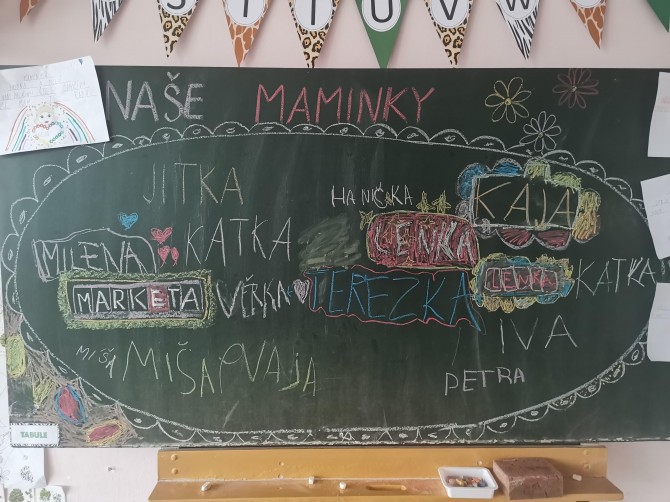 S T U V W
NAŠE MAMINKY
JITKA
HANIČKA
KAJA
MILENA
KATKA
LENKA
MARKETA
VĚRKA
TEREZKA
LENKA
KATKA
IVA
MIŠA
MIŠA
PETRA
TABULE